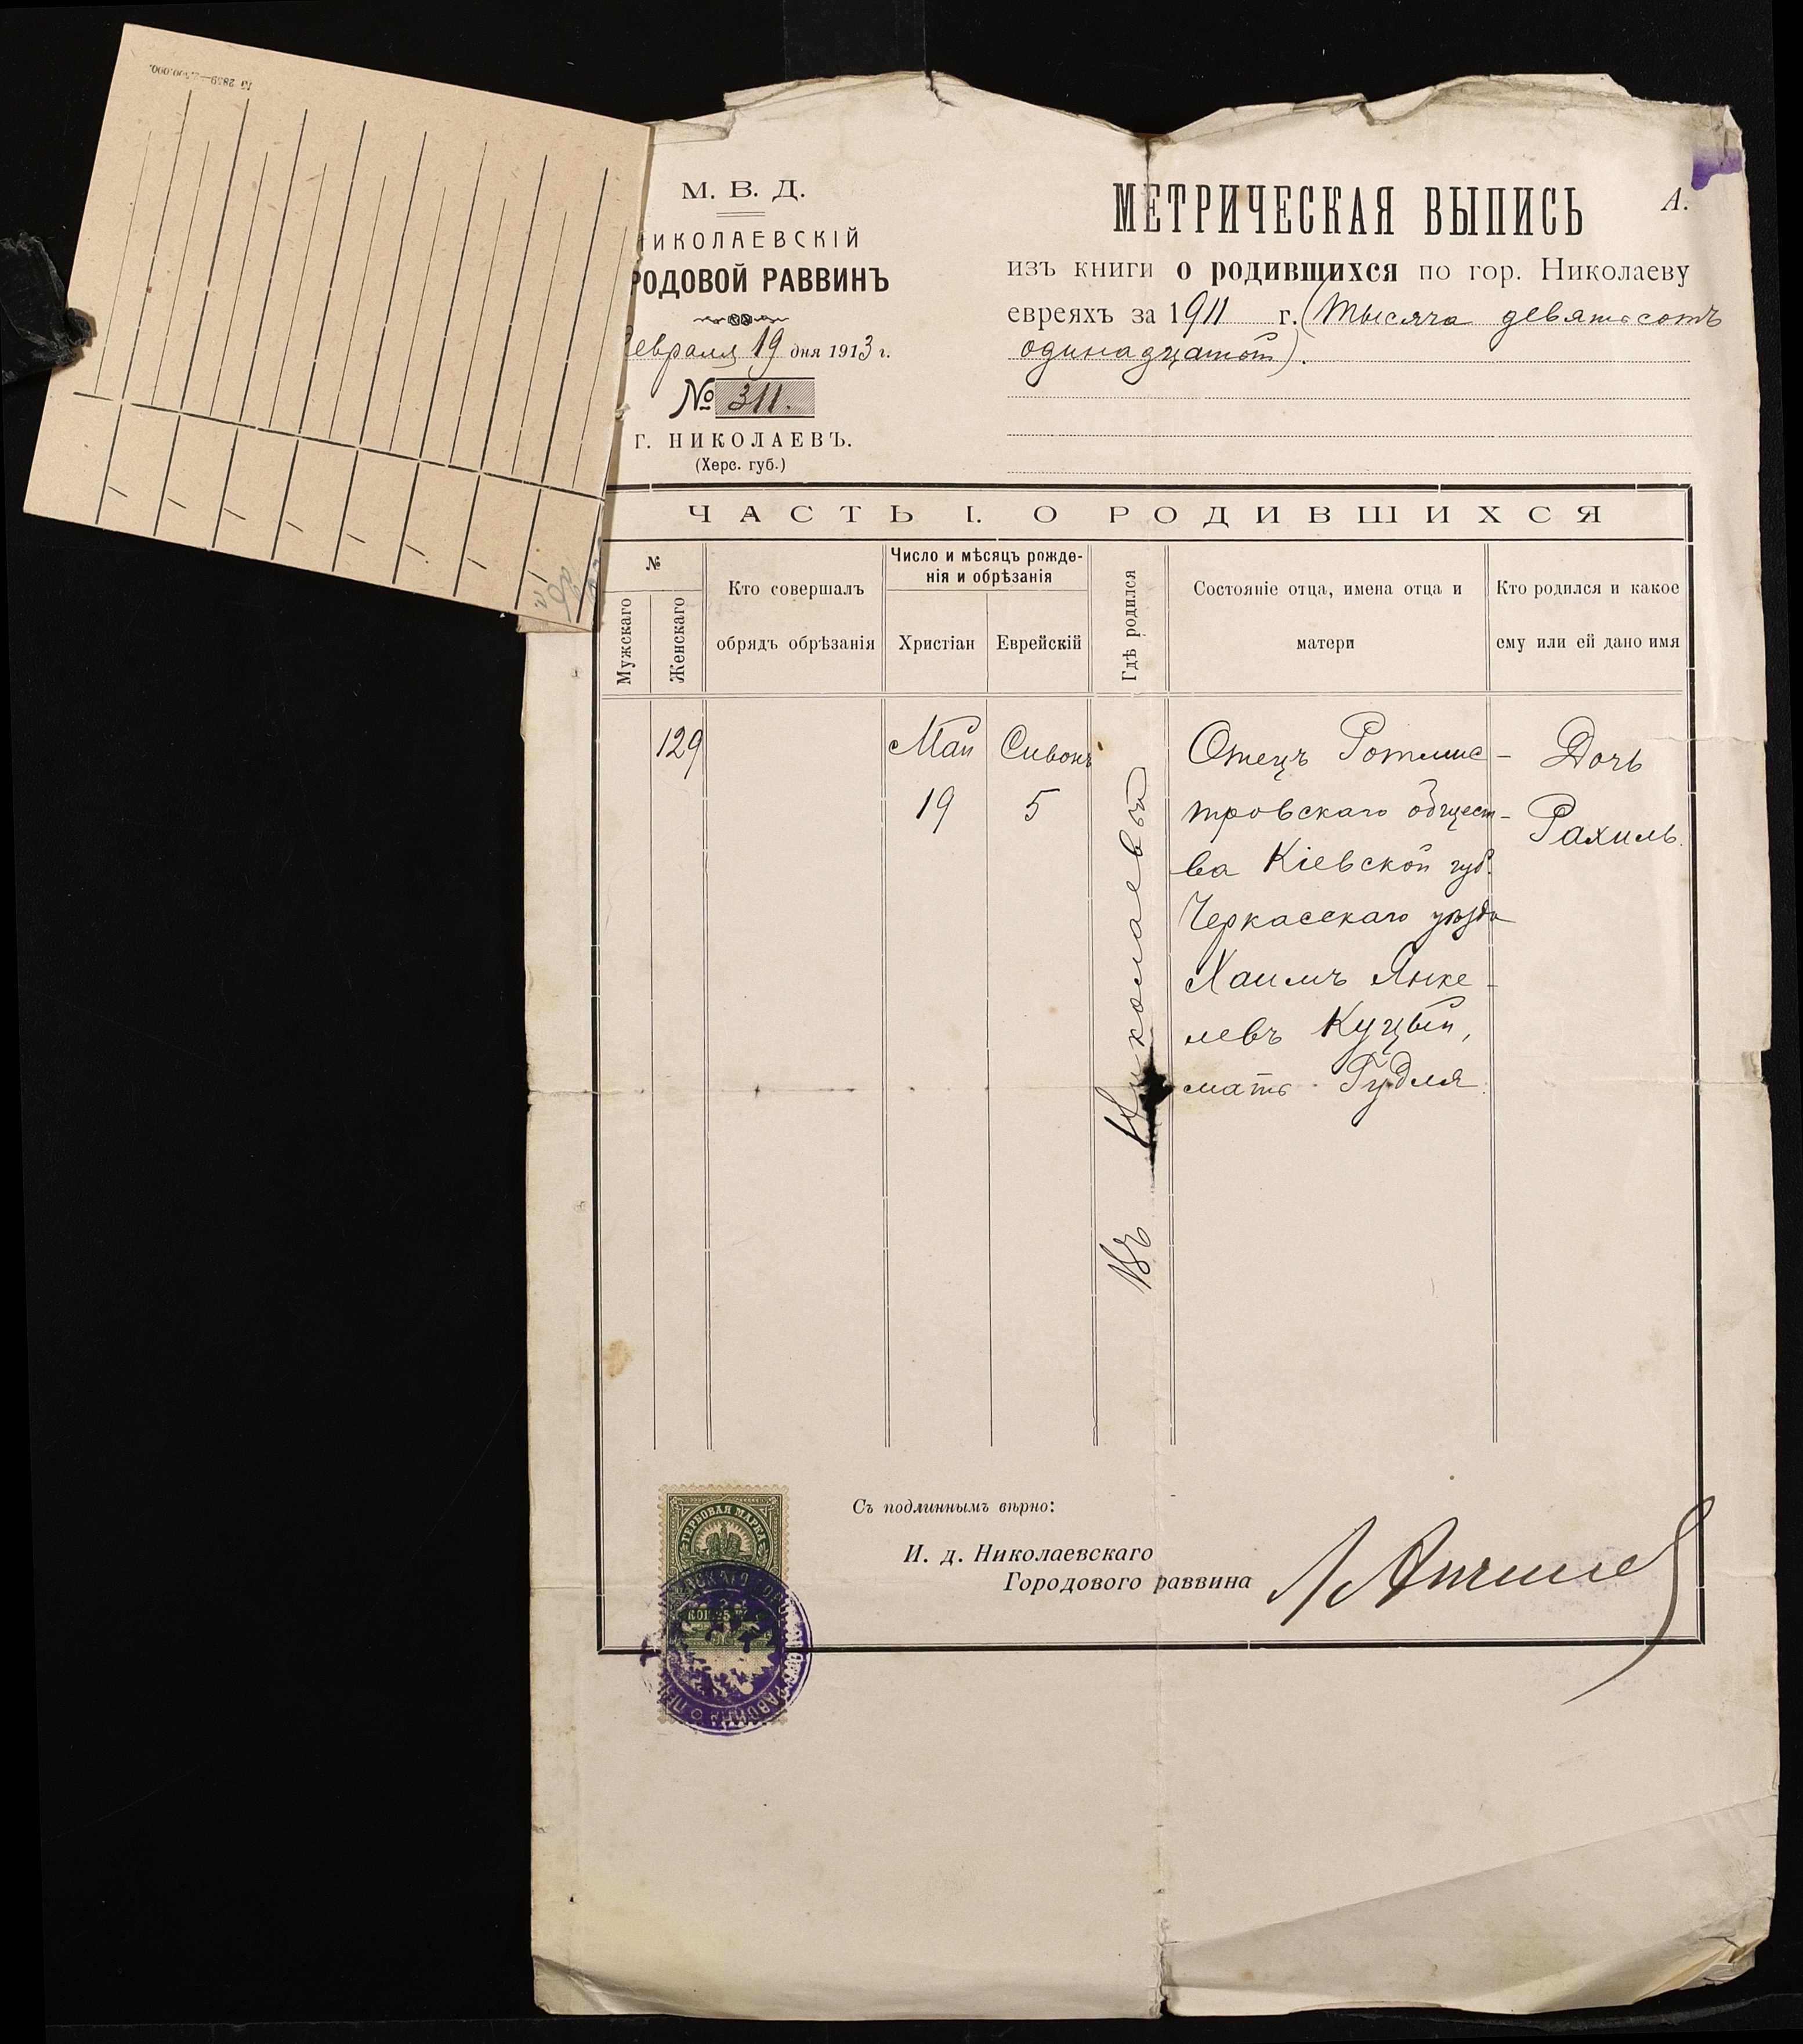 М. В. Д.
НИКОЛАЕВСКІЙ
РОДОВОЙ РАВВИНЪ
евраля 19 дня 1913 г.
№ 311.
Г. НИКОЛАЕВЪ.
(Херс. губ.)
МЕТРИЧЕСКАЯ ВЫПИСЬ
А.
изъ книги о родившихся по гор. Николаеву
евреяхъ за 1911 г. (тысяча девятьсотъ
одинадцатый).
ЧАСТЬ I. О РОДИВШИХСЯ
№
Мужскаго
Женскаго
Кто совершалъ
обрядъ обрѣзанія
Число и мѣсяцъ рожде-
нія и обрѣзанія
Христіан
Еврейскій
Гдѣ родился
Состояніе отца, имена отца и
матери
Кто родился и какое
ему или ей дано имя
129
Май
19
Сивонъ
5
Въ Николаевѣ
Отецъ Ротмис-
тровскаго общест-
ва Кіевской губ.
Черкасскаго уѣзда
Хаимъ Янке-
левъ Куцый,
мать Гудля.
Дочь
Рахиль.
Съ подлиннымъ вѣрно:
И. д. Николаевскаго
Городового раввина
ГЕРБОВАЯ МАРКА